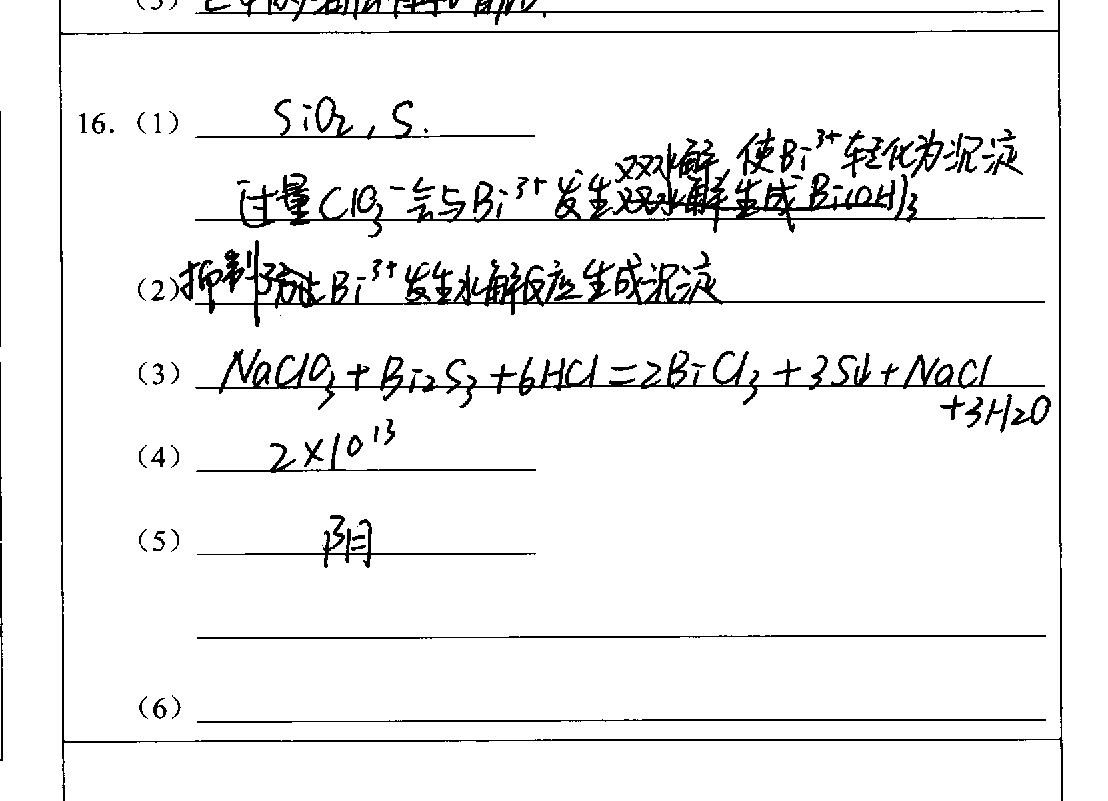 16. (1) SiO₂, S.
双水解, 使Bi³⁺转化为沉淀
过量ClO₃⁻会与Bi³⁺发生双水解生成Bi(OH)₃
(2) 抑制 Bi³⁺发生水解反应生成沉淀
(3) NaClO₃+Bi₂S₃+6HCl=2BiCl₃+3S↓+NaCl
+3H₂O
(4) 2×10¹³
(5) 阴
(6)